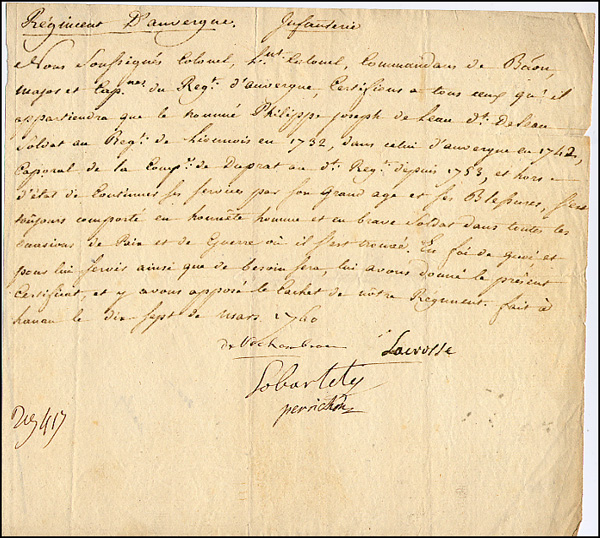 Régiment D'auvergne. Infanterie
Nous Soussignés Colonel, Lnt. Colonel, Commandans de Baon,
major et Capnes. du Regt. d'auvergne, Certifions a tous ceux qu'il
appartiendra que le nommé Philippe joseph de Leau dt. DeLeau
Soldat au Regt. de Lionnois en 1732, dans celui d'auvergne en 1742,
Caporal de la Compe. de Duprat au dt. Regt. depuis 1753, et hors
d'état de Continuer ses services par son grand age et ses Blessures, s'est
toujours comporté en honnête homme et en brave Soldat dans toutes les
occasions de Paix et de Guerre où il s'est trouvé. En foi de quoi et
pour lui servir ainsi que de besoin sera, lui avons donné le présent
Certificat, et y avons apposé le Cachet de nôtre Régiment. fait à
hanau le dix sept de mars 1760
de Rochambeau Lacrosse
perrichon